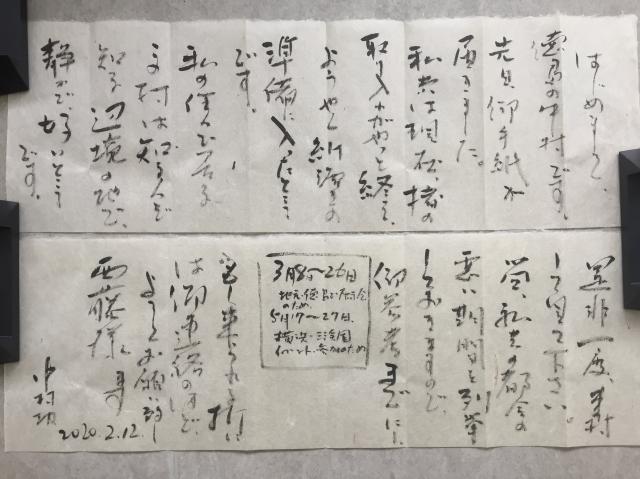 はじめまして、
徳島の中村です。
先日御手紙が
届きました。
私共は現在、楮の
取り入れがやっと終え、
ようやく紙漉きの
準備に入ったところ
です。
私の住んで居る
村は知る人ぞ
知る辺境の地で、
静かで好いところ
です。
是非一度、来村
して見て下さい。
私共の都合の
悪い期間を列挙
しておきますので、
御参考までに。
3月8〜26日
地元徳島で展示会
のため。
5月17〜27日。
横浜・三溪園
イベント参加のため
もし来られる折に
は御連絡の上で、
よろしくお願い致し
西藤様
中村功
2020.2.12.